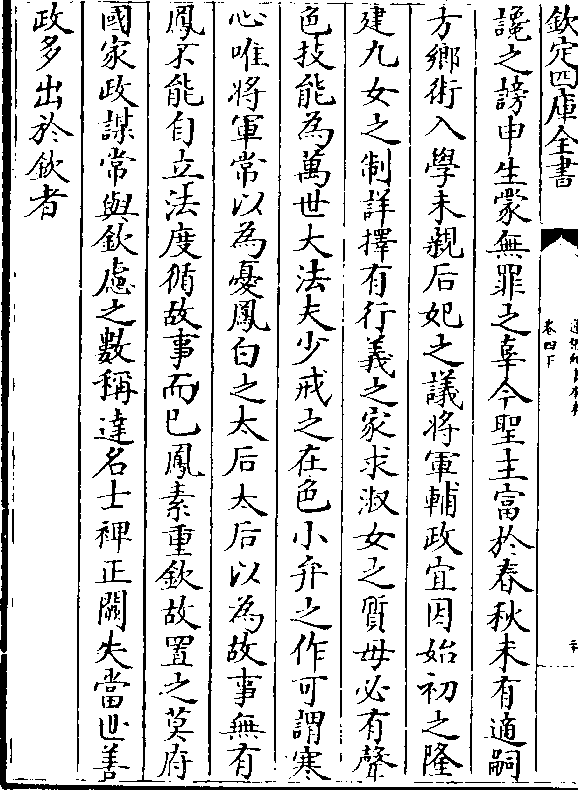 欽定四庫全書
卷四下
讒之謗申生蒙無罪之辜今聖主富於春秋未有適嗣
方鄉術入學未親后妃之議將軍輔政宜因始初之隆
建九女之制詳擇有行義之家求淑女之質毋必有聲
色技能為萬世大法夫少戒之在色小弁之作可謂寒
心唯將軍常以為憂鳳白之太后太后以為故事無有
鳳不能自立法度循故事而已鳳素重欽故置之莫府
國家政謀常與欽慮之數稱達名士裨正闕失當世善
政多出於欽者